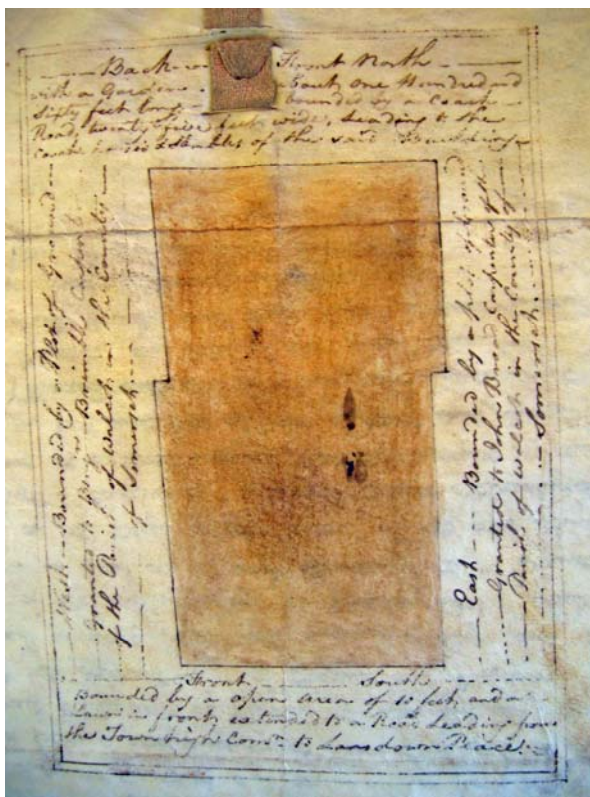 Back Front North
with a Garden one Hundred and
Sixty feet long bounded by a Coach
Road, twenty five feet wide, Leading to the
Coach houses & Stables of the said Building
West Bounded by a Plot of Ground
Granted to
of the Parish of Walcot in the County
of Somerset
East Bounded by a plot of Ground
Granted to John Broad Carpenter of the
Parish of Walcot in the County of
Somerset
Front South
Bounded by a open area of 10 feet and a
Lawn in front extended to a Road Leading from
the Town to Lansdown Place